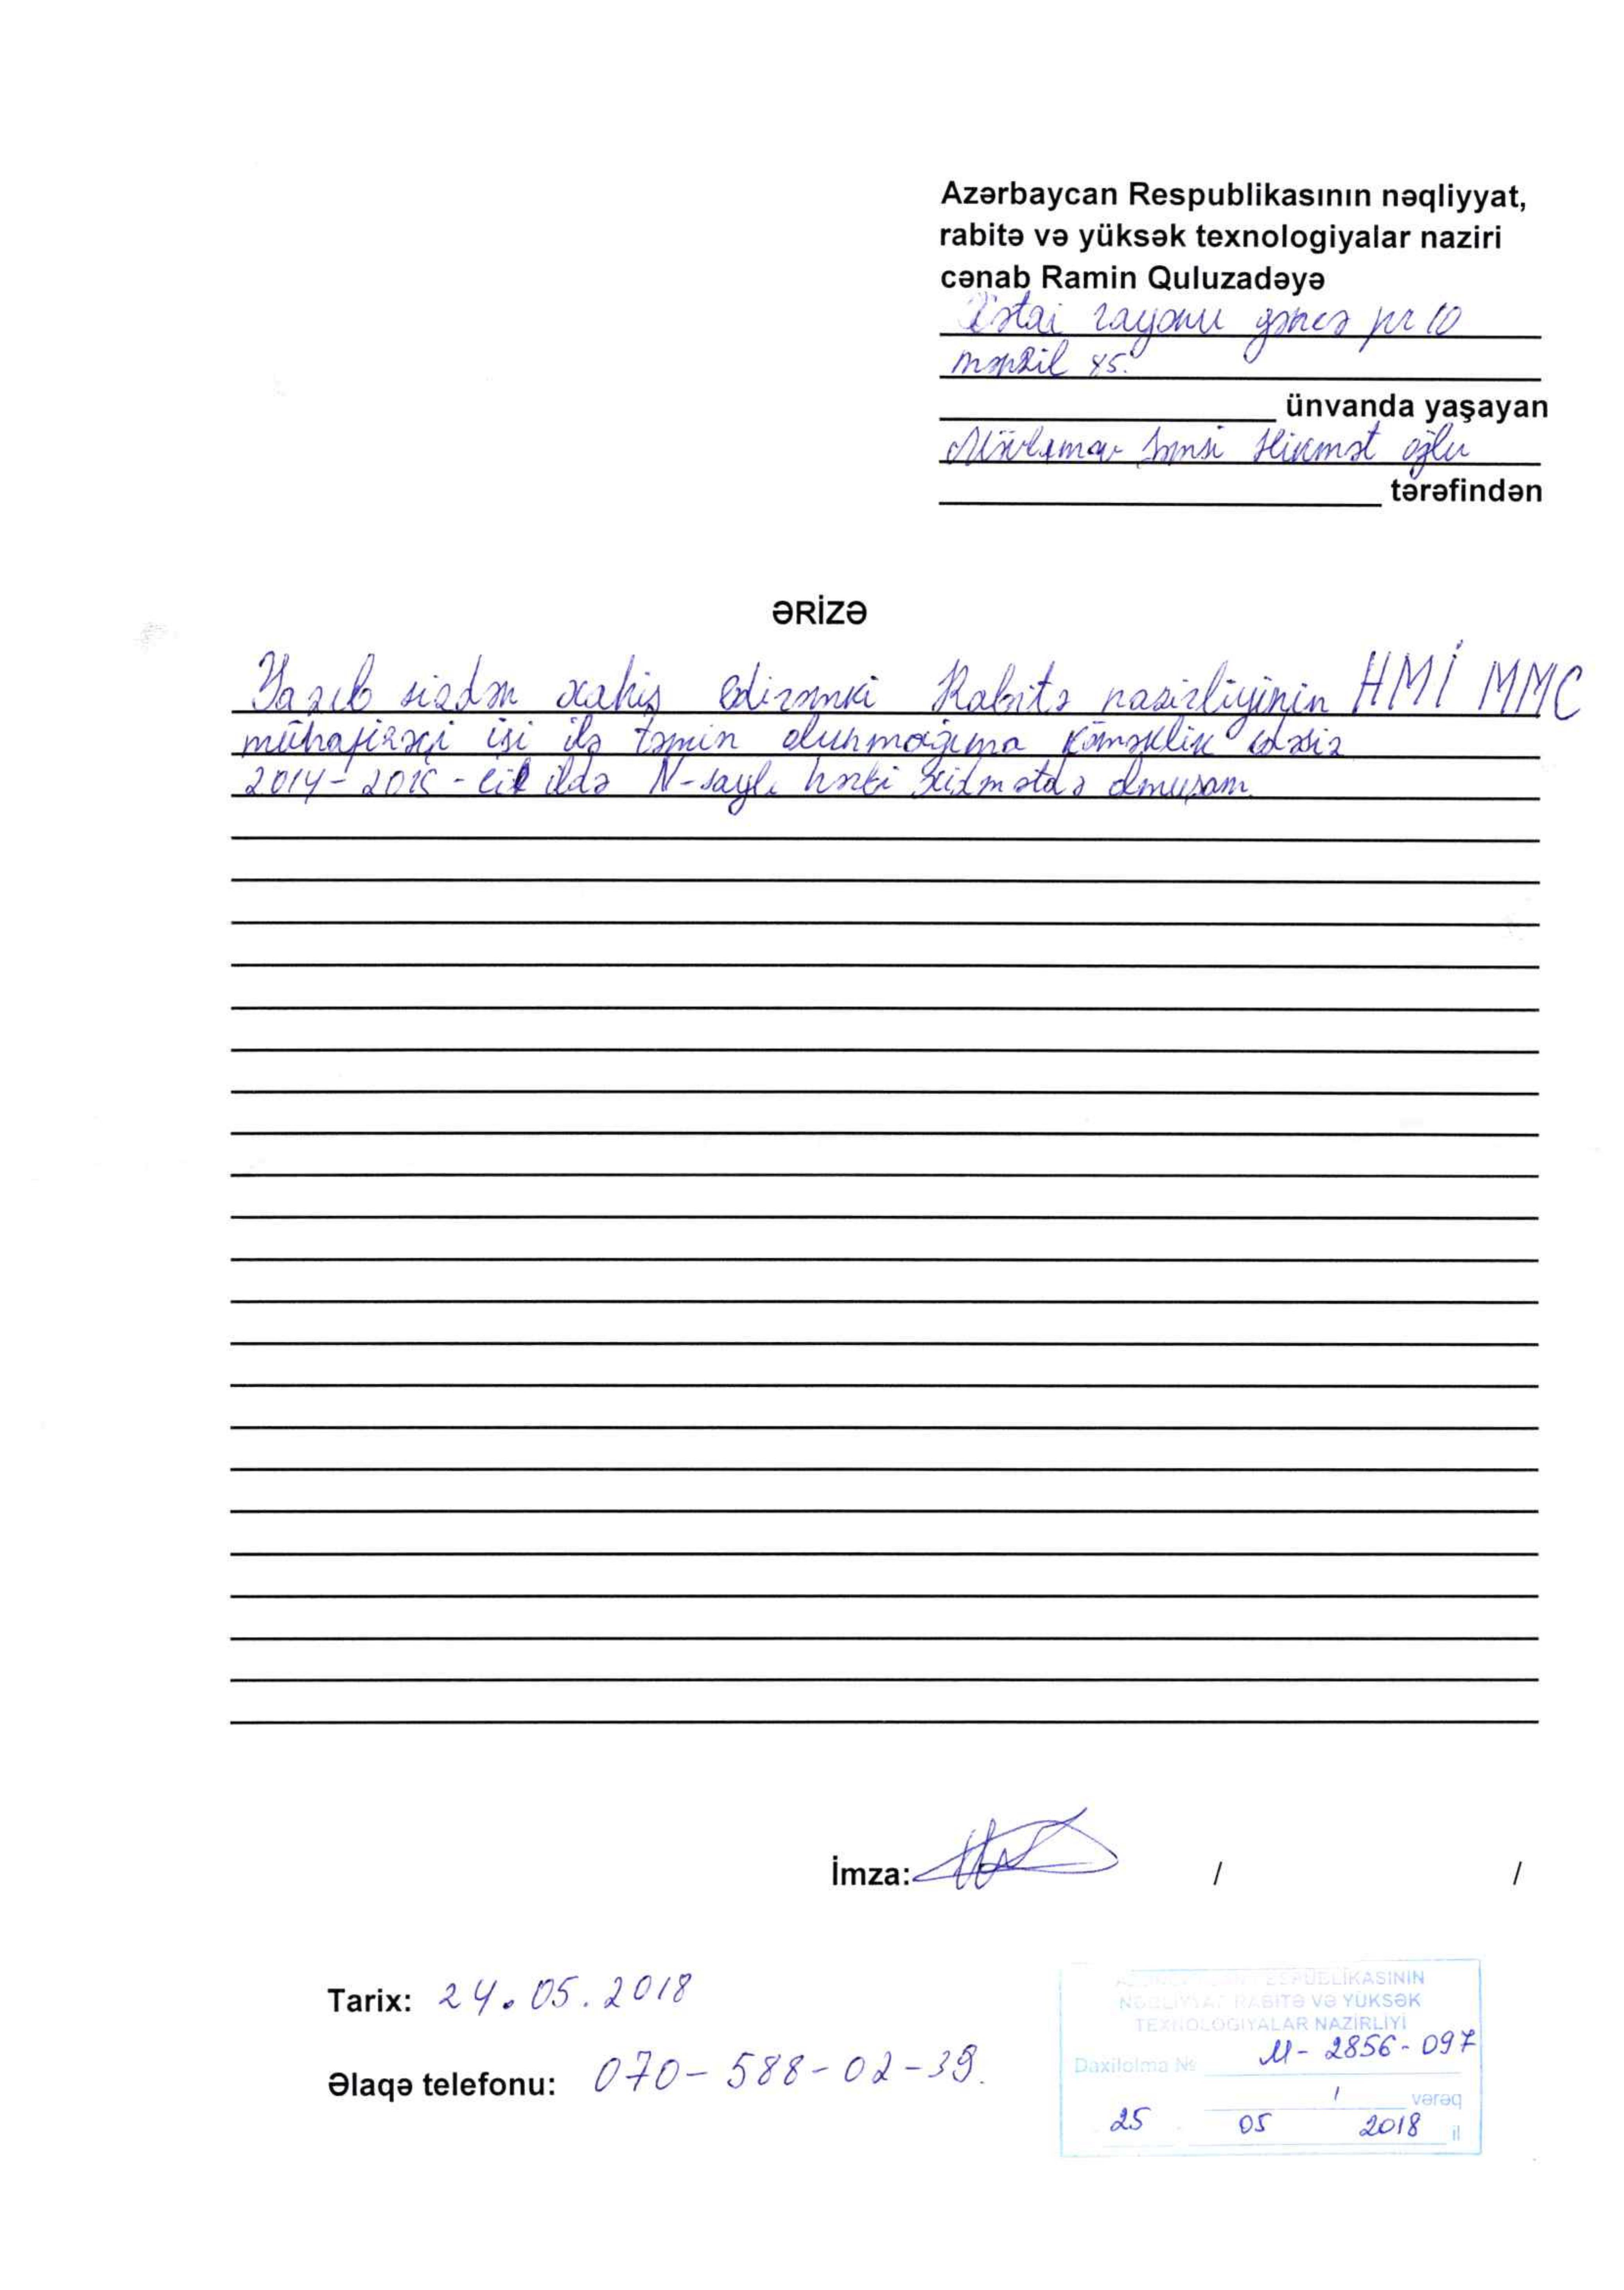 Azərbaycan Respublikasının nəqliyyat,
rabitə və yüksək texnologiyalar naziri
cənab Ramin Quluzadəyə
Xətai rayonu gəncə pr 10
mənzil 45.
ünvanda yaşayan
Hikmət oğlu
tərəfindən
ƏRİZƏ
Yazıb sizdən xahiş edirəmki Rabitə nazirliyinin HMİ MMC
mühafizəçi işi ilə təmin olunmağıma köməklik edəsiz
2014-2015-ci ildə N-saylı hərbi xidmətdə olmuşam.
İmza: / /
Tarix: 24.05.2018
Əlaqə telefonu: 070-588-02-39.
RESPUBLİKASININ
NƏQLİYYAT RABİTƏ VƏ YÜKSƏK
TEXNOLOGİYALAR NAZİRLİYİ
Daxilolma № M-2856-097
1 vərəq
25 05 2018 il